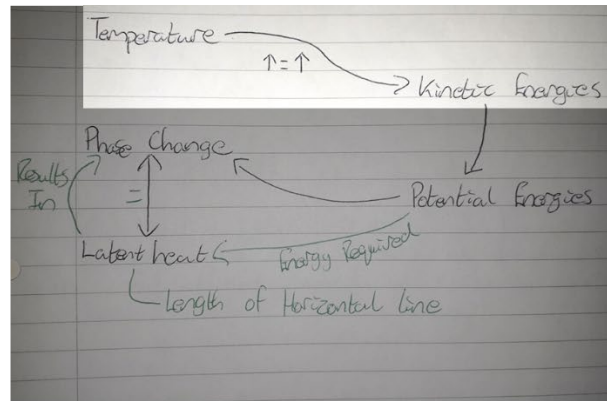 Temperature
↑=↑
Kinetic Energies
Phase Change
Results
In
=
Potential Energies
Latent heat
Energy Required
Length of Horizontal line